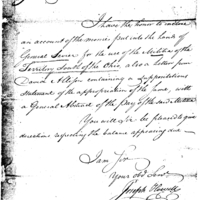 I have the honor to enclose
an account of the monies put into the hands of
General Sevier for the use of the Militia of the
Territory South of the Ohio, also a letter from
David Allison containing a
statement of the appropriation of the same, with
a General Abstract of the pay of the said Militia
You will Sir be pleased to give
directions respecting the balance appearing due
I am Sir
Your obd Serv
Joseph Howell